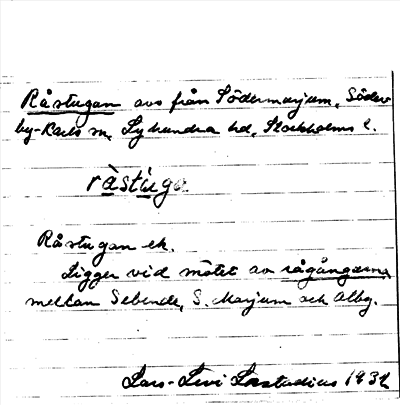 Råstugan avs från Södermarjum, Söder
by-Karls sn, Lyhundra hd, Stockholms l.
råstugo
Råstugan ek.
Ligger vid mötet av rågångarna
mellan Sebende, S. Marjum och Alby.
Lars-Levi Læstadius 1934